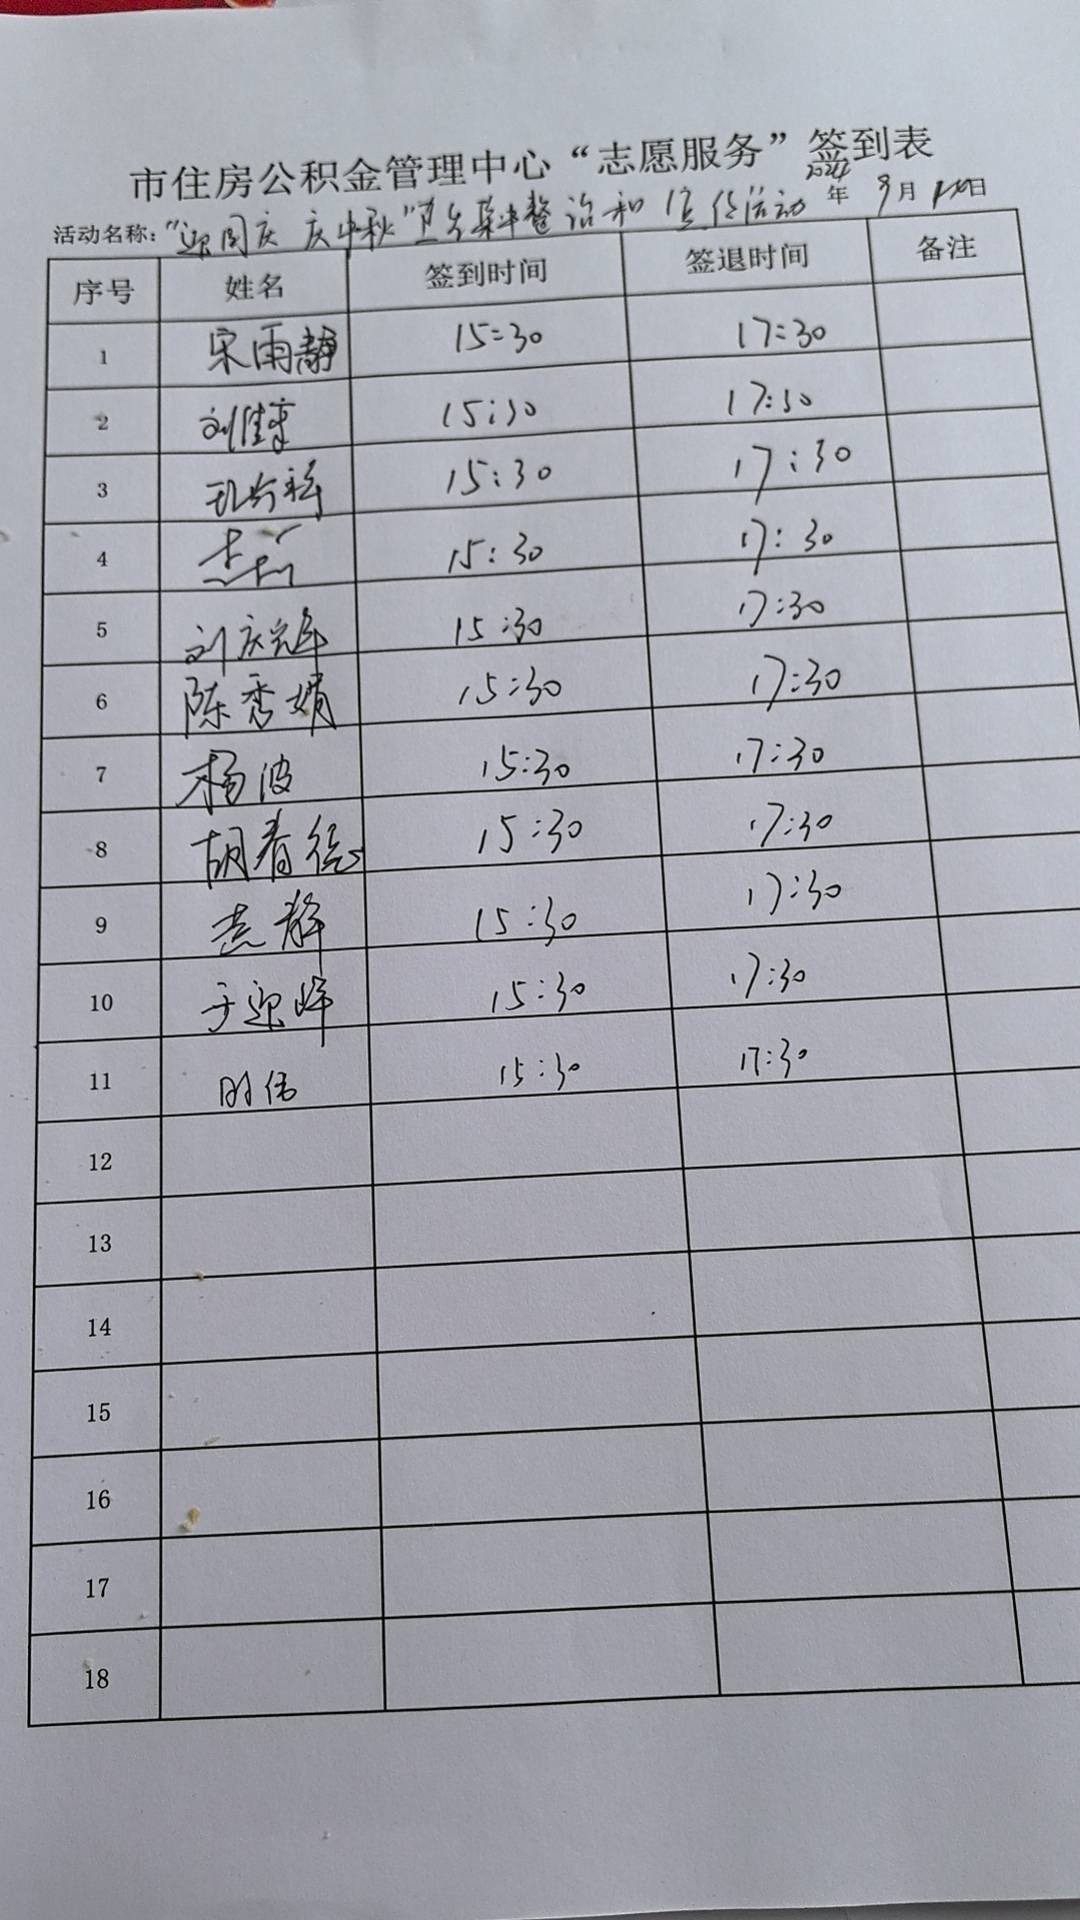 市住房公积金管理中心“志愿服务”签到表
活动名称：“迎国庆 庆中秋”卫生集中整治和宣传活动 2024年 9月 日
序号 姓名 签到时间 签退时间 备注
1 宋雨静 15:30 17:30
2 刘佳 15:30 17:30
3 15:30 17:30
4 15:30 17:30
5 刘庆 15:30 17:30
6 陈秀娟 15:30 17:30
7 杨波 15:30 17:30
8 胡春德 15:30 17:30
9 静 15:30 17:30
10 于迎峰 15:30 17:30
11 时伟 15:30 17:30
12
13
14
15
16
17
18